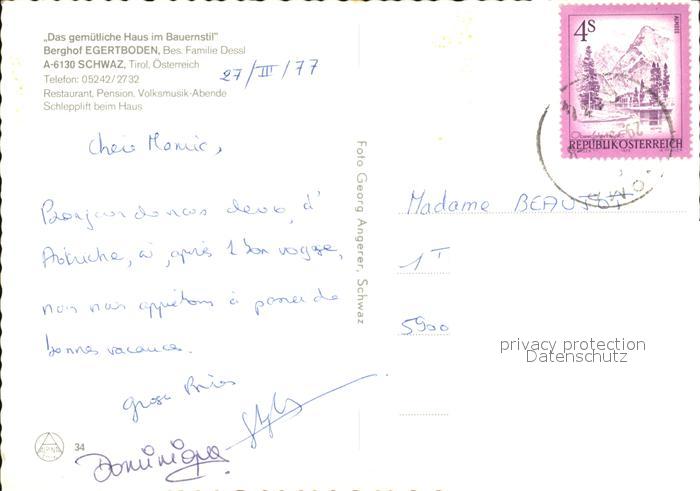 „Das gemütliche Haus im Bauernstil"
Berghof EGERTBODEN, Bes. Familie Dessl
A-6130 SCHWAZ, Tirol, Österreich
Telefon: 05242/2732
Restaurant, Pension, Volksmusik-Abende
Schlepplift beim Haus
27/III/77
Chère Mamie,
Bonjour de nous deux, d'
Autriche, où, après 1 bon voyage,
nous nous apprêtons à passer de
bonnes vacances.
Gros Bises
Dominique
34
Foto Georg Angerer, Schwaz
4S
ALMSEE
REPUBLIK ÖSTERREICH
Madame BEAUJOT
1 T
5900
privacy protection
Datenschutz